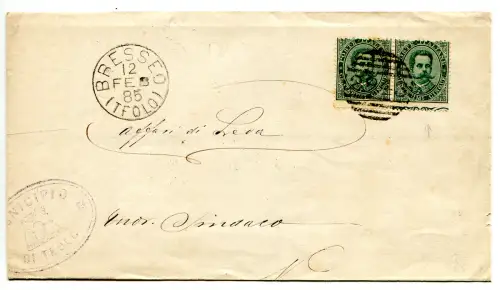 BRESSEO
12
FEB
85
(TEOLO)
affari di Leva
Sindaco
MUNICIPIO
DI TEOLO